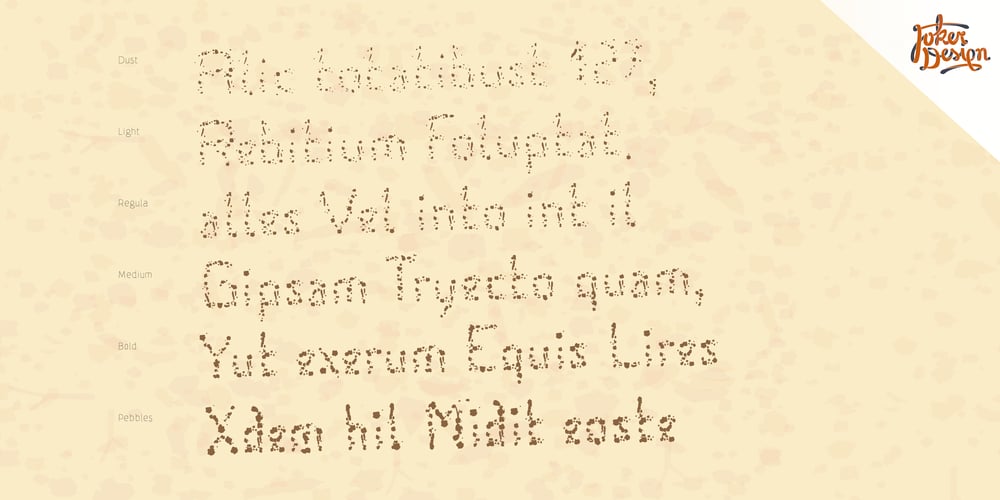 Joker
Design
Dust
Alic totatibust 127,
Light
Rebitium Foluptat.
Regula
alles Vel into int il
Medium
Gipsam Tryecto quam,
Bold
Yut exerum Equis Lires
Pebbles
Xdem hil Nidit easte